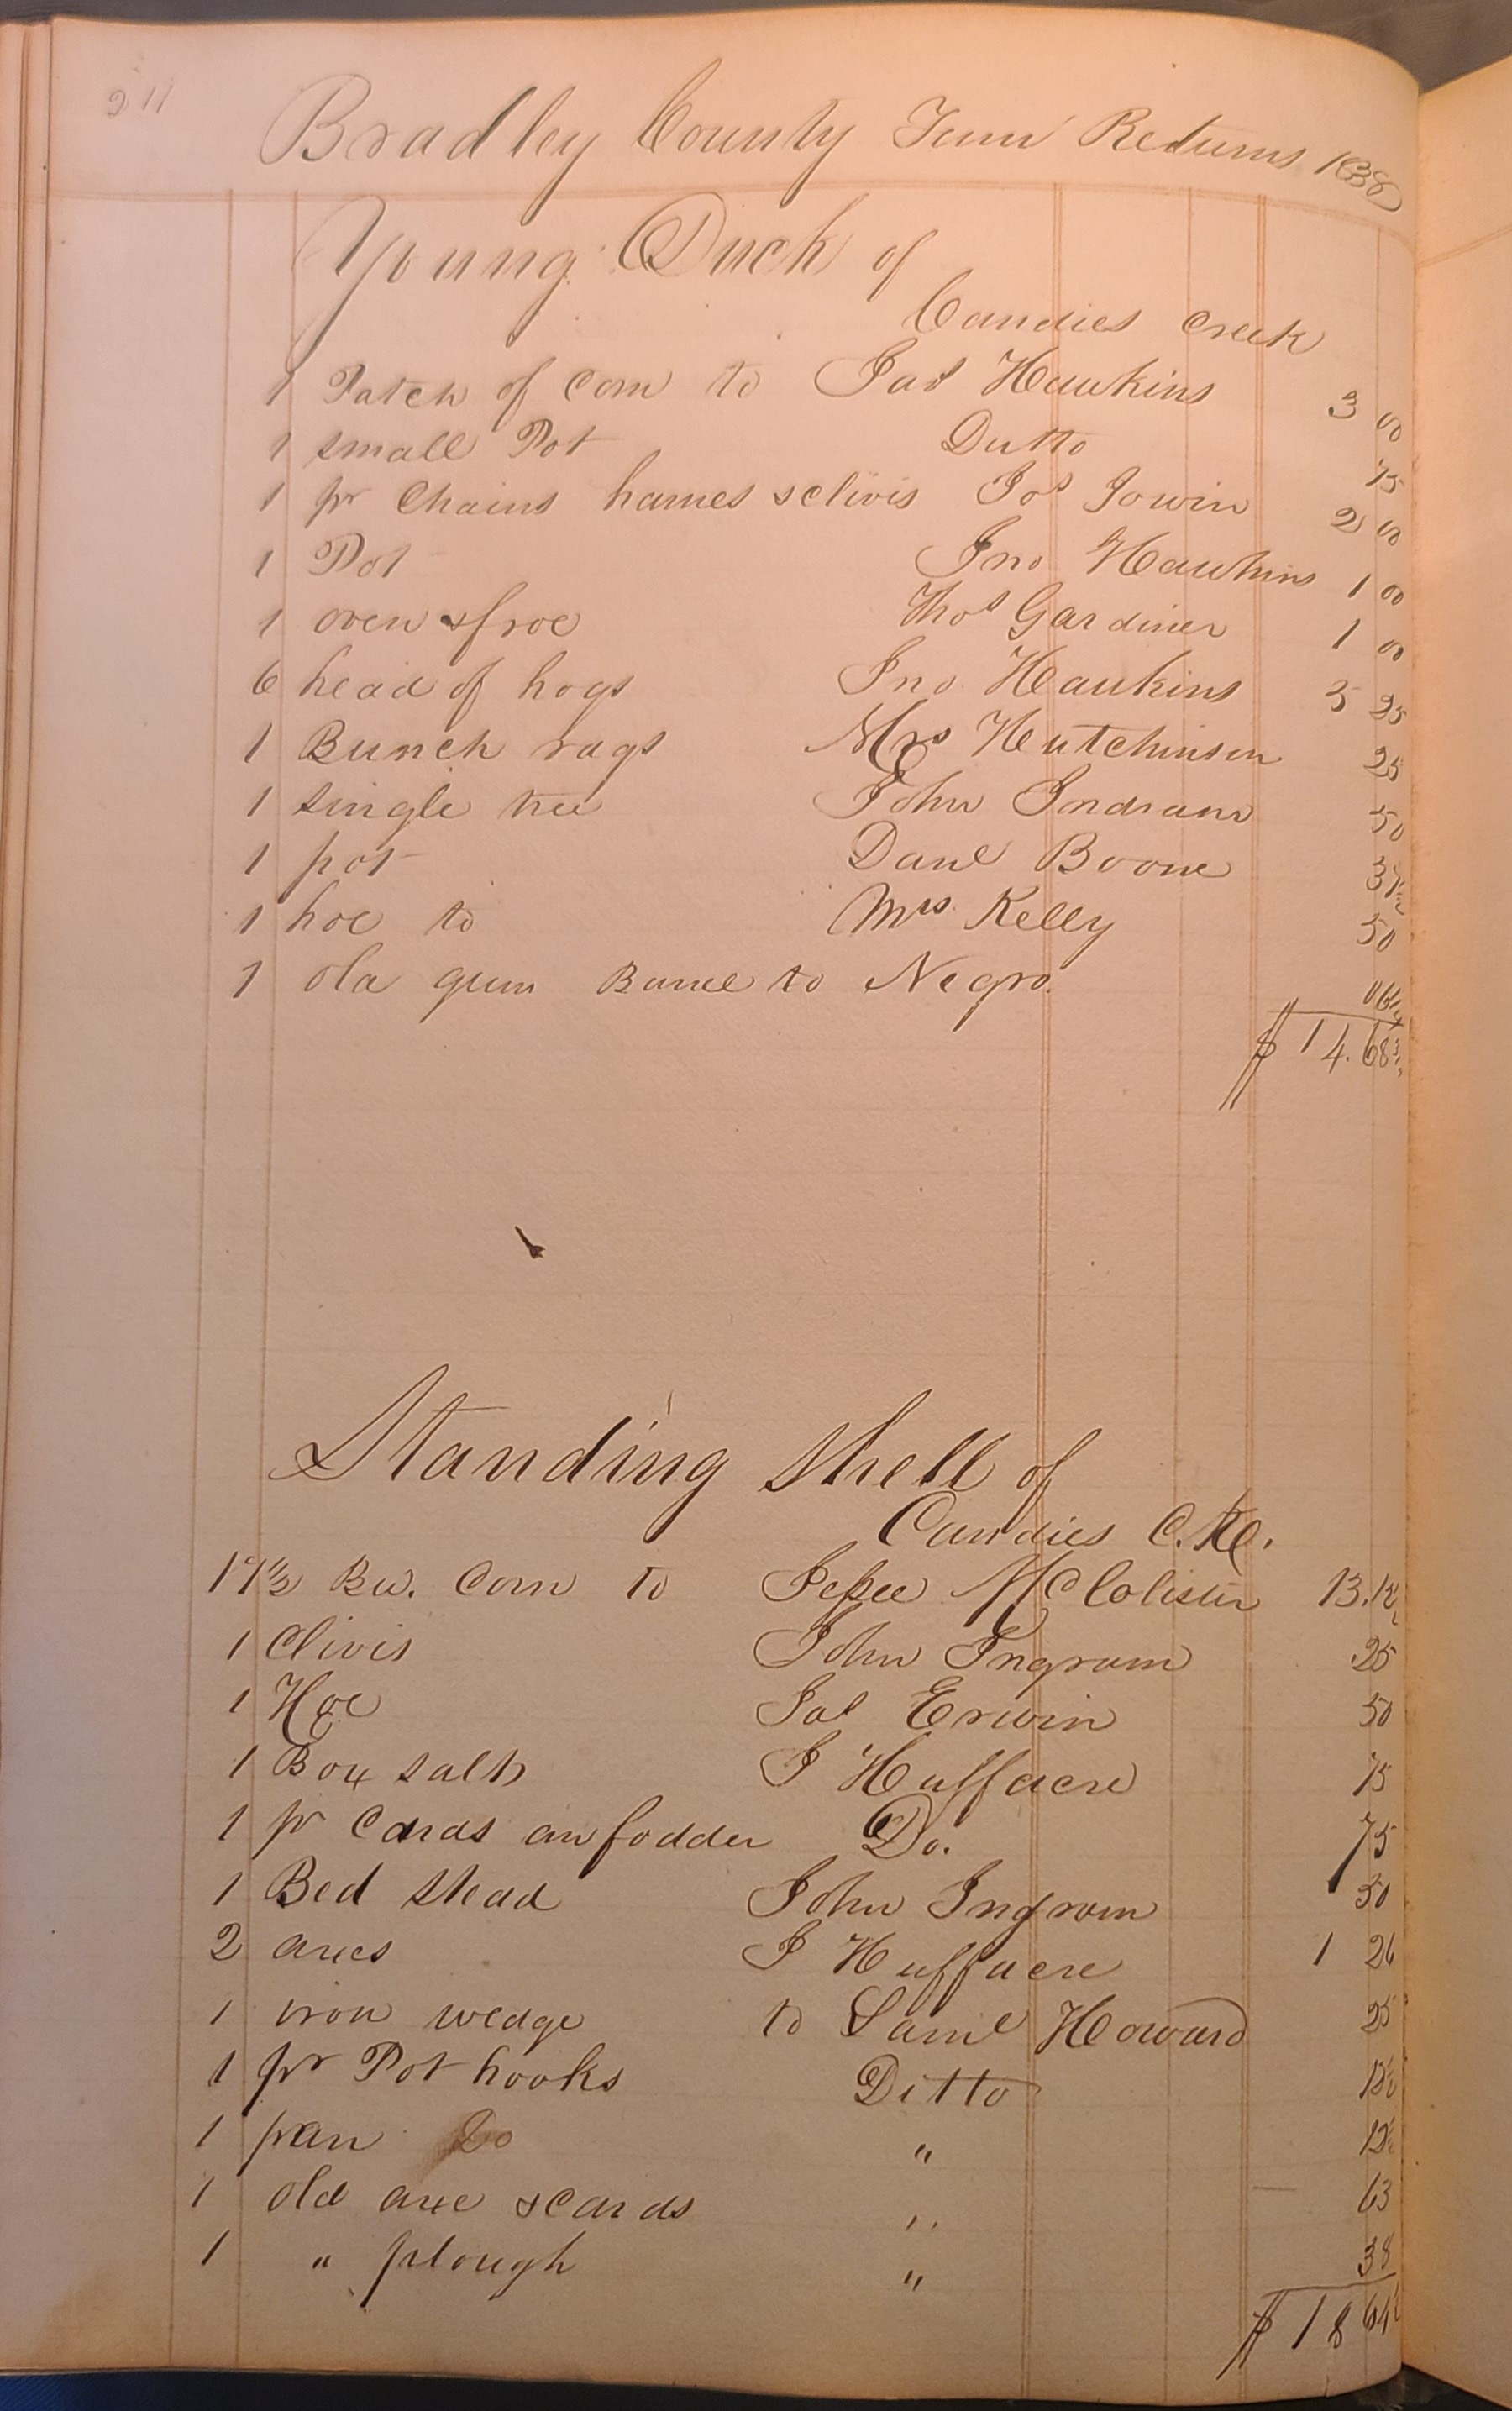 211
Bradley County Tenn Returns 1838
Young Duck of
Candies Creek
1 Patch of Corn to Jas Hawkins 3 00
1 small Pot Ditto 75
1 pr Chains hames & clivis Jos 2 00
1 Pot Jno Hawkins 1 00
1 oven & froe Thos Gardiner 1 00
6 head of hogs Jno Hawkins 5 25
1 Bunch rags Mrs Hutchinson 25
1 single tree John 50
1 pot Danl Boone 37½
1 hoe to Mrs Kelly 50
1 old gum Barrel to Negro 06¼
$14.68¾
Standing Shell of
Candies C.K.
17½ Bu. Corn to Jessee McColister 13.12½
1 Clivis John Ingram 25
1 Hoe Jas Erwin 50
1 Box salts J Huffacre 75
1 pr Cards an fodder Do. 75
1 Bed stead John Ingram 50
2 axes J Huffacre 1 26
1 iron wedge to Saml Howard 25
1 pr Pot hooks Ditto 12½
1 pan Do " 12½
1 old axe & cards " 63
1 " plough " 38
$18 64½